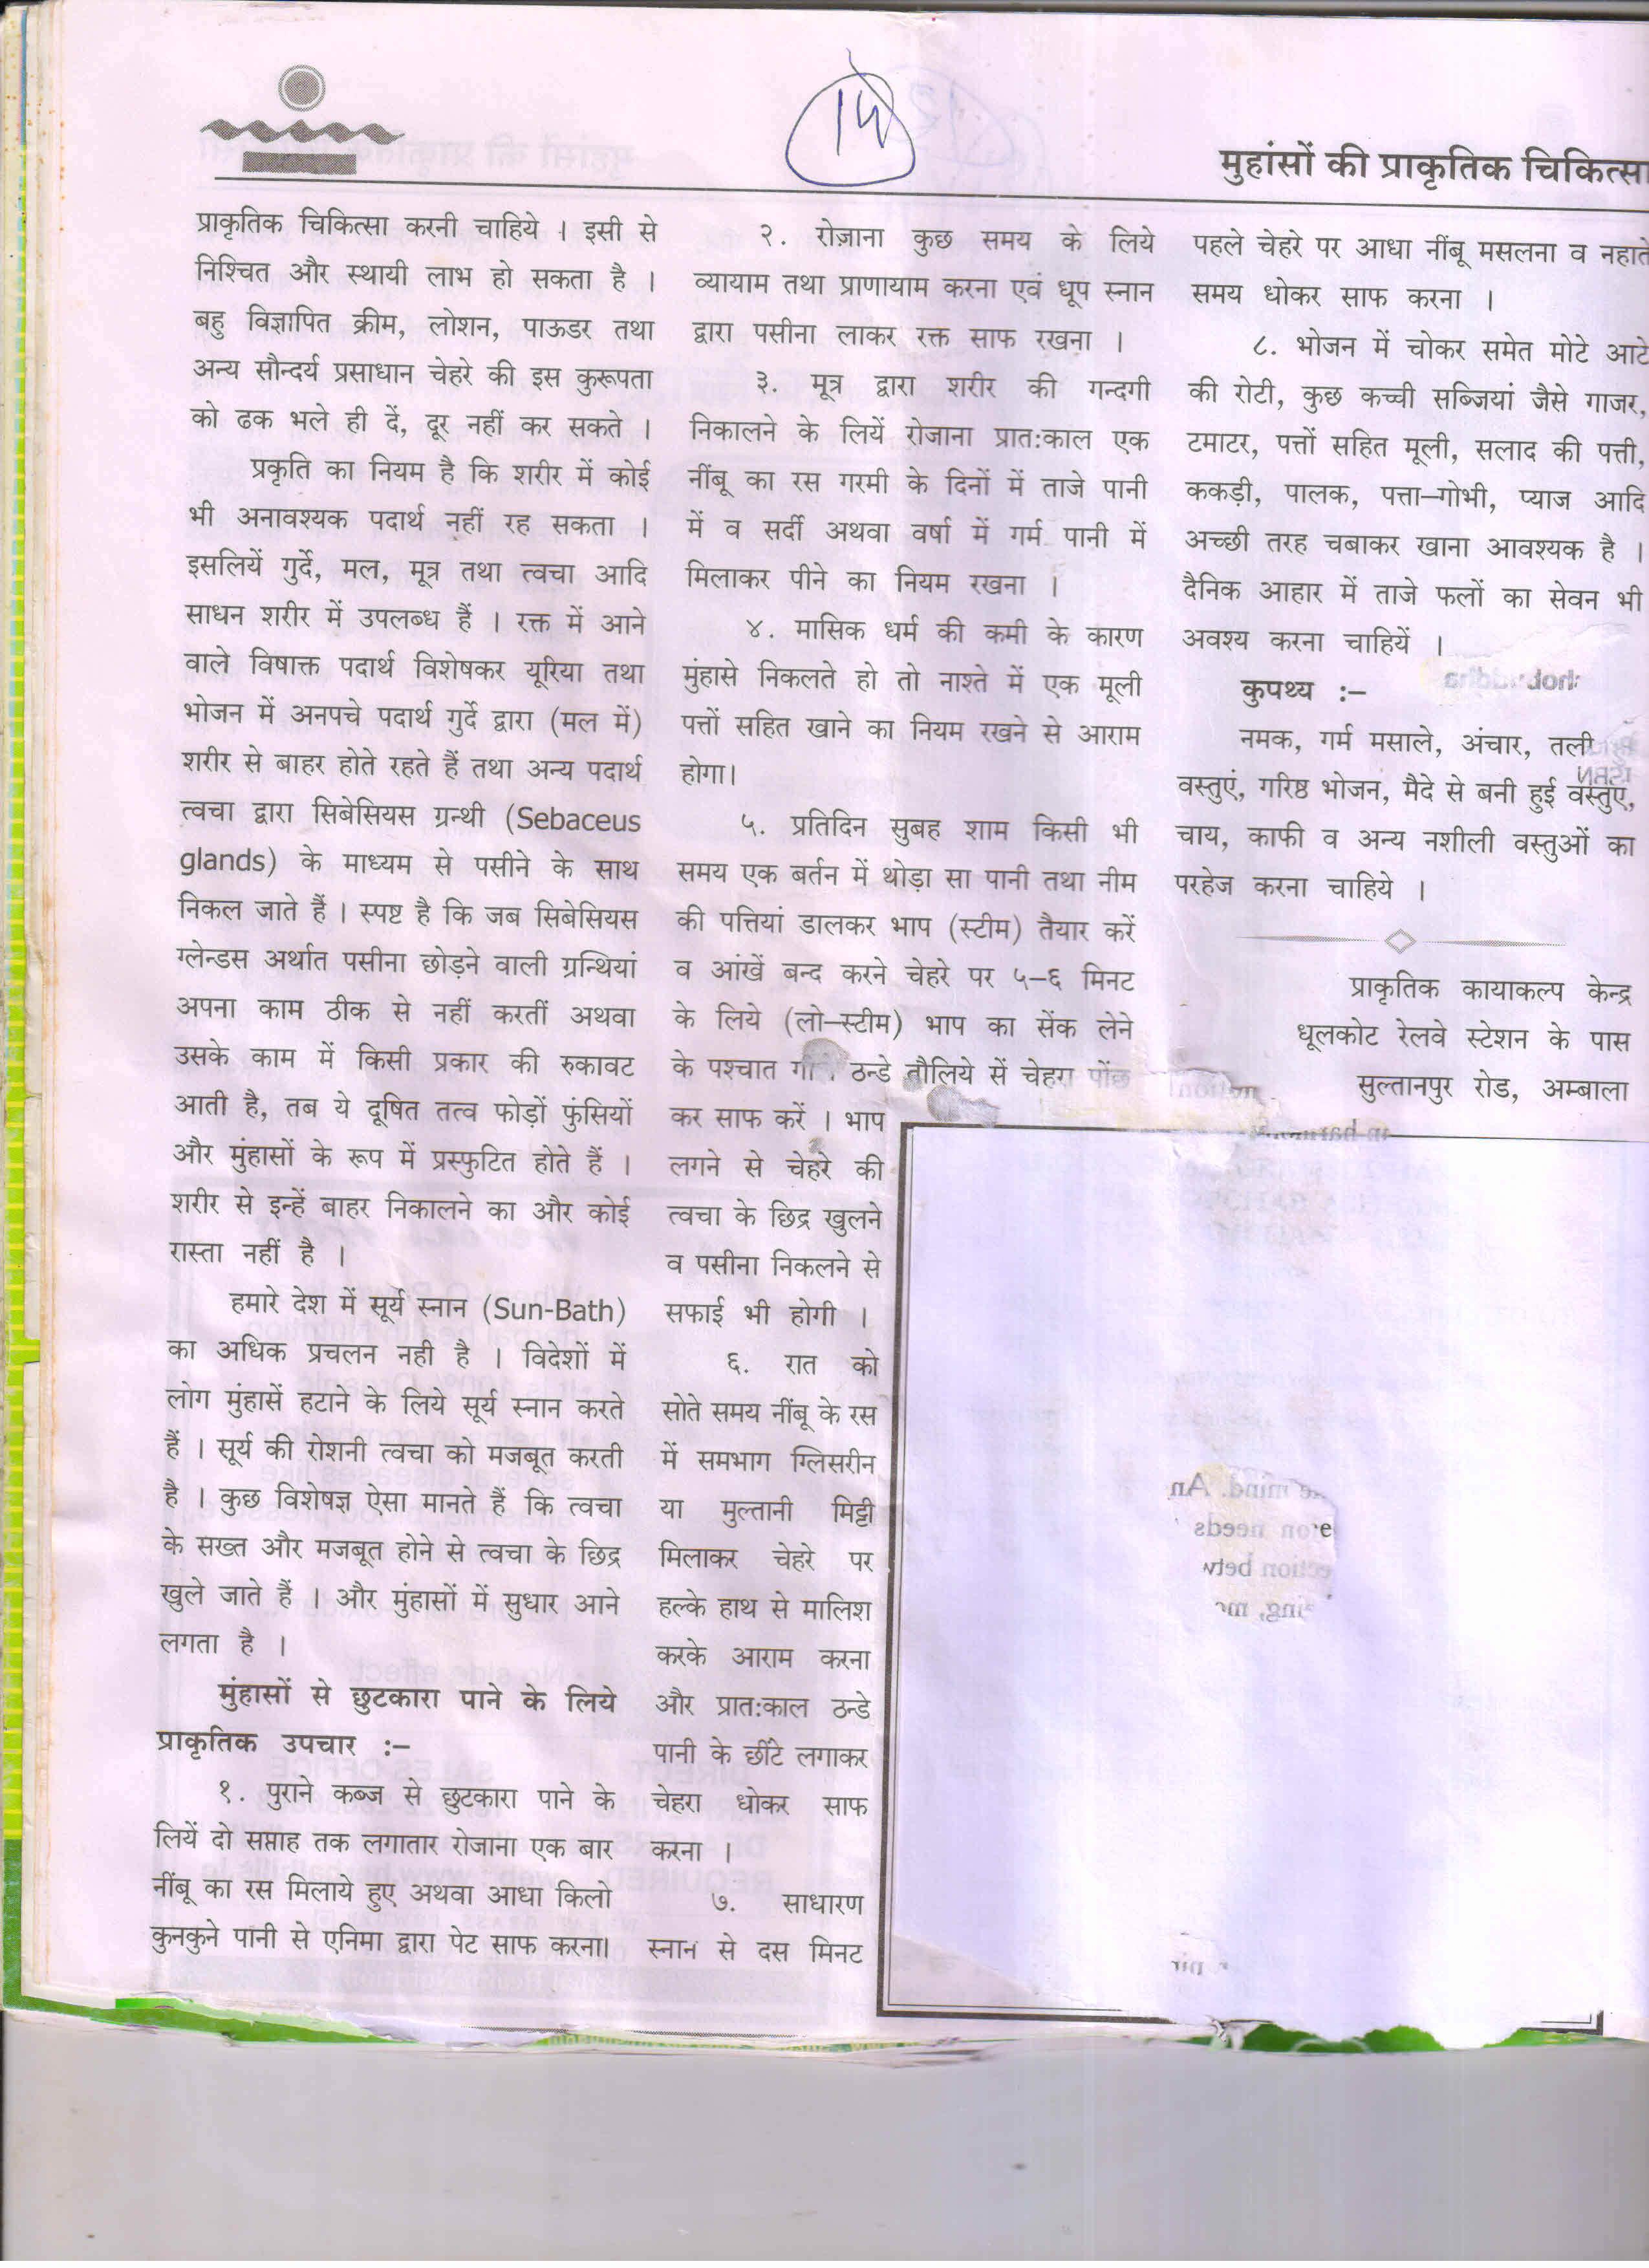 मुहांसों की प्राकृतिक चिकित्सा
प्राकृतिक चिकित्सा करनी चाहिये । इसी से
निश्चित और स्थायी लाभ हो सकता है ।
बहु विज्ञापित क्रीम, लोशन, पाऊडर तथा
अन्य सौन्दर्य प्रसाधान चेहरे की इस कुरूपता
को ढक भले ही दें, दूर नहीं कर सकते ।
प्रकृति का नियम है कि शरीर में कोई
भी अनावश्यक पदार्थ नहीं रह सकता ।
इसलियें गुर्दे, मल, मूत्र तथा त्वचा आदि
साधन शरीर में उपलब्ध हैं । रक्त में आने
वाले विषाक्त पदार्थ विशेषकर यूरिया तथा
भोजन में अनपचे पदार्थ गुर्दे द्वारा (मल में)
शरीर से बाहर होते रहते हैं तथा अन्य पदार्थ
त्वचा द्वारा सिबेसियस ग्रन्थी (Sebaceus
glands) के माध्यम से पसीने के साथ
निकल जाते हैं । स्पष्ट है कि जब सिबेसियस
ग्लेन्डस अर्थात पसीना छोड़ने वाली ग्रन्थियां
अपना काम ठीक से नहीं करतीं अथवा
उसके काम में किसी प्रकार की रुकावट
आती है, तब ये दूषित तत्व फोड़ों फुंसियों
और मुंहासों के रूप में प्रस्फुटित होते हैं ।
शरीर से इन्हें बाहर निकालने का और कोई
रास्ता नहीं है ।
हमारे देश में सूर्य स्नान (Sun-Bath)
का अधिक प्रचलन नही है । विदेशों में
लोग मुंहासें हटाने के लिये सूर्य स्नान करते
हैं । सूर्य की रोशनी त्वचा को मजबूत करती
है । कुछ विशेषज्ञ ऐसा मानते हैं कि त्वचा
के सख्त और मजबूत होने से त्वचा के छिद्र
खुले जाते हैं । और मुंहासों में सुधार आने
लगता है ।
मुंहासों से छुटकारा पाने के लिये
प्राकृतिक उपचार :–
१. पुराने कब्ज से छुटकारा पाने के
लियें दो सप्ताह तक लगातार रोजाना एक बार
नींबू का रस मिलाये हुए अथवा आधा किलो
कुनकुने पानी से एनिमा द्वारा पेट साफ करना।
२. रोज़ाना कुछ समय के लिये
व्यायाम तथा प्राणायाम करना एवं धूप स्नान
द्वारा पसीना लाकर रक्त साफ रखना ।
३. मूत्र द्वारा शरीर की गन्दगी
निकालने के लियें रोजाना प्रात:काल एक
नींबू का रस गरमी के दिनों में ताजे पानी
में व सर्दी अथवा वर्षा में गर्म पानी में
मिलाकर पीने का नियम रखना ।
४. मासिक धर्म की कमी के कारण
मुंहासे निकलते हो तो नाश्ते में एक मूली
पत्तों सहित खाने का नियम रखने से आराम
होगा।
५. प्रतिदिन सुबह शाम किसी भी
समय एक बर्तन में थोड़ा सा पानी तथा नीम
की पत्तियां डालकर भाप (स्टीम) तैयार करें
व आंखें बन्द करने चेहरे पर ५–६ मिनट
के लिये (लो–स्टीम) भाप का सेंक लेने
के पश्चात ठन्डे तौलिये सें चेहरा पोंछ
कर साफ करें । भाप
लगने से चेहरे की
त्वचा के छिद्र खुलने
व पसीना निकलने से
सफाई भी होगी ।
६. रात को
सोते समय नींबू के रस
में समभाग ग्लिसरीन
या मुल्तानी मिट्टी
मिलाकर चेहरे पर
हल्के हाथ से मालिश
करके आराम करना
और प्रात:काल ठन्डे
पानी के छींटे लगाकर
चेहरा धोकर साफ
करना ।
७. साधारण
स्नान से दस मिनट
पहले चेहरे पर आधा नींबू मसलना व नहाते
समय धोकर साफ करना ।
८. भोजन में चोकर समेत मोटे आटे
की रोटी, कुछ कच्ची सब्जियां जैसे गाजर,
टमाटर, पत्तों सहित मूली, सलाद की पत्ती,
ककड़ी, पालक, पत्ता–गोभी, प्याज आदि
अच्छी तरह चबाकर खाना आवश्यक है ।
दैनिक आहार में ताजे फलों का सेवन भी
अवश्य करना चाहियें ।
कुपथ्य :–
नमक, गर्म मसाले, अंचार, तली
वस्तुएं, गरिष्ठ भोजन, मैदे से बनी हुई वस्तुए,
चाय, काफी व अन्य नशीली वस्तुओं का
परहेज करना चाहिये ।
प्राकृतिक कायाकल्प केन्द्र
धूलकोट रेलवे स्टेशन के पास
सुल्तानपुर रोड, अम्बाला